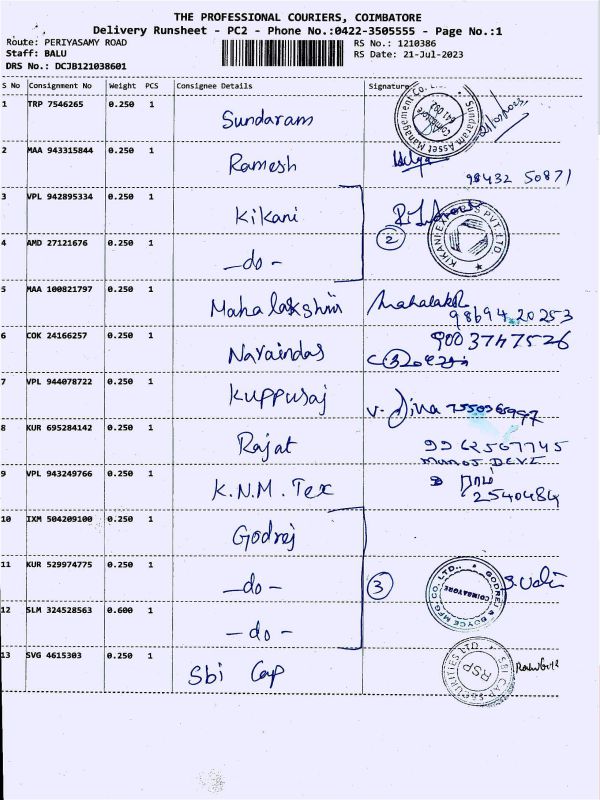 THE PROFESSIONAL COURIERS, COIMBATORE
Delivery Runsheet - PC2 - Phone No.:0422-3505555 - Page No.:1
Route: PERIYASAMY ROAD
Staff: BALU
DRS No.: DCJB121038601
RS No.: 1210386
RS Date: 21-Jul-2023
S No Consignment No Weight PCS Consignee Details Signature
1 TRP 7546265 0.250 1 Sundaram
Sundaram Asset Management Co.
Coimbatore
641 002
2 MAA 943315844 0.250 1 Ramesh
98432 50871
3 VPL 942895334 0.250 1 Kikani
2
KIKANI EXPORTS PVT. LTD.
4 AMD 27121676 0.250 1 -do-
5 MAA 100821797 0.250 1 Mahalakshmi Mahalaksh
98694 20253
6 COK 24166257 0.250 1 Naraindas 9003747526
7 VPL 944078722 0.250 1 Kuppusaj V. Jina 7550365997
8 KUR 695284142 0.250 1 Rajat 9962567745
MANOJ DEVE
9 VPL 943249766 0.250 1 K.N.M. Tex ராம்
2540484
10 IXM 504209100 0.250 1 Godrej
11 KUR 529974775 0.250 1 -do- 3
GODREJ & BOYCE MFG.CO. LTD.,
COIMBATORE
12 SLM 324528563 0.600 1 -do-
13 SVG 4615303 0.250 1 Sbi Cap
SBI CAP SECURITIES LTD.
RSP